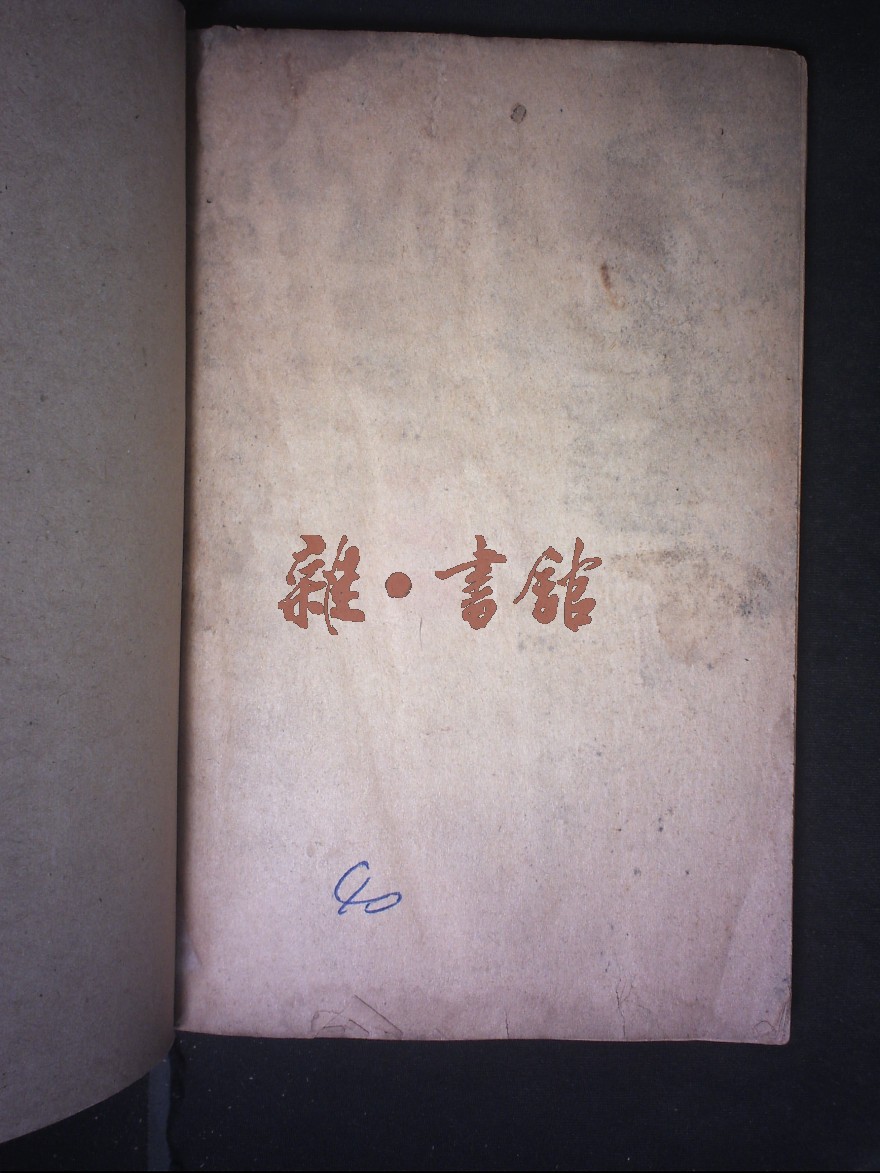 雜·書館
40